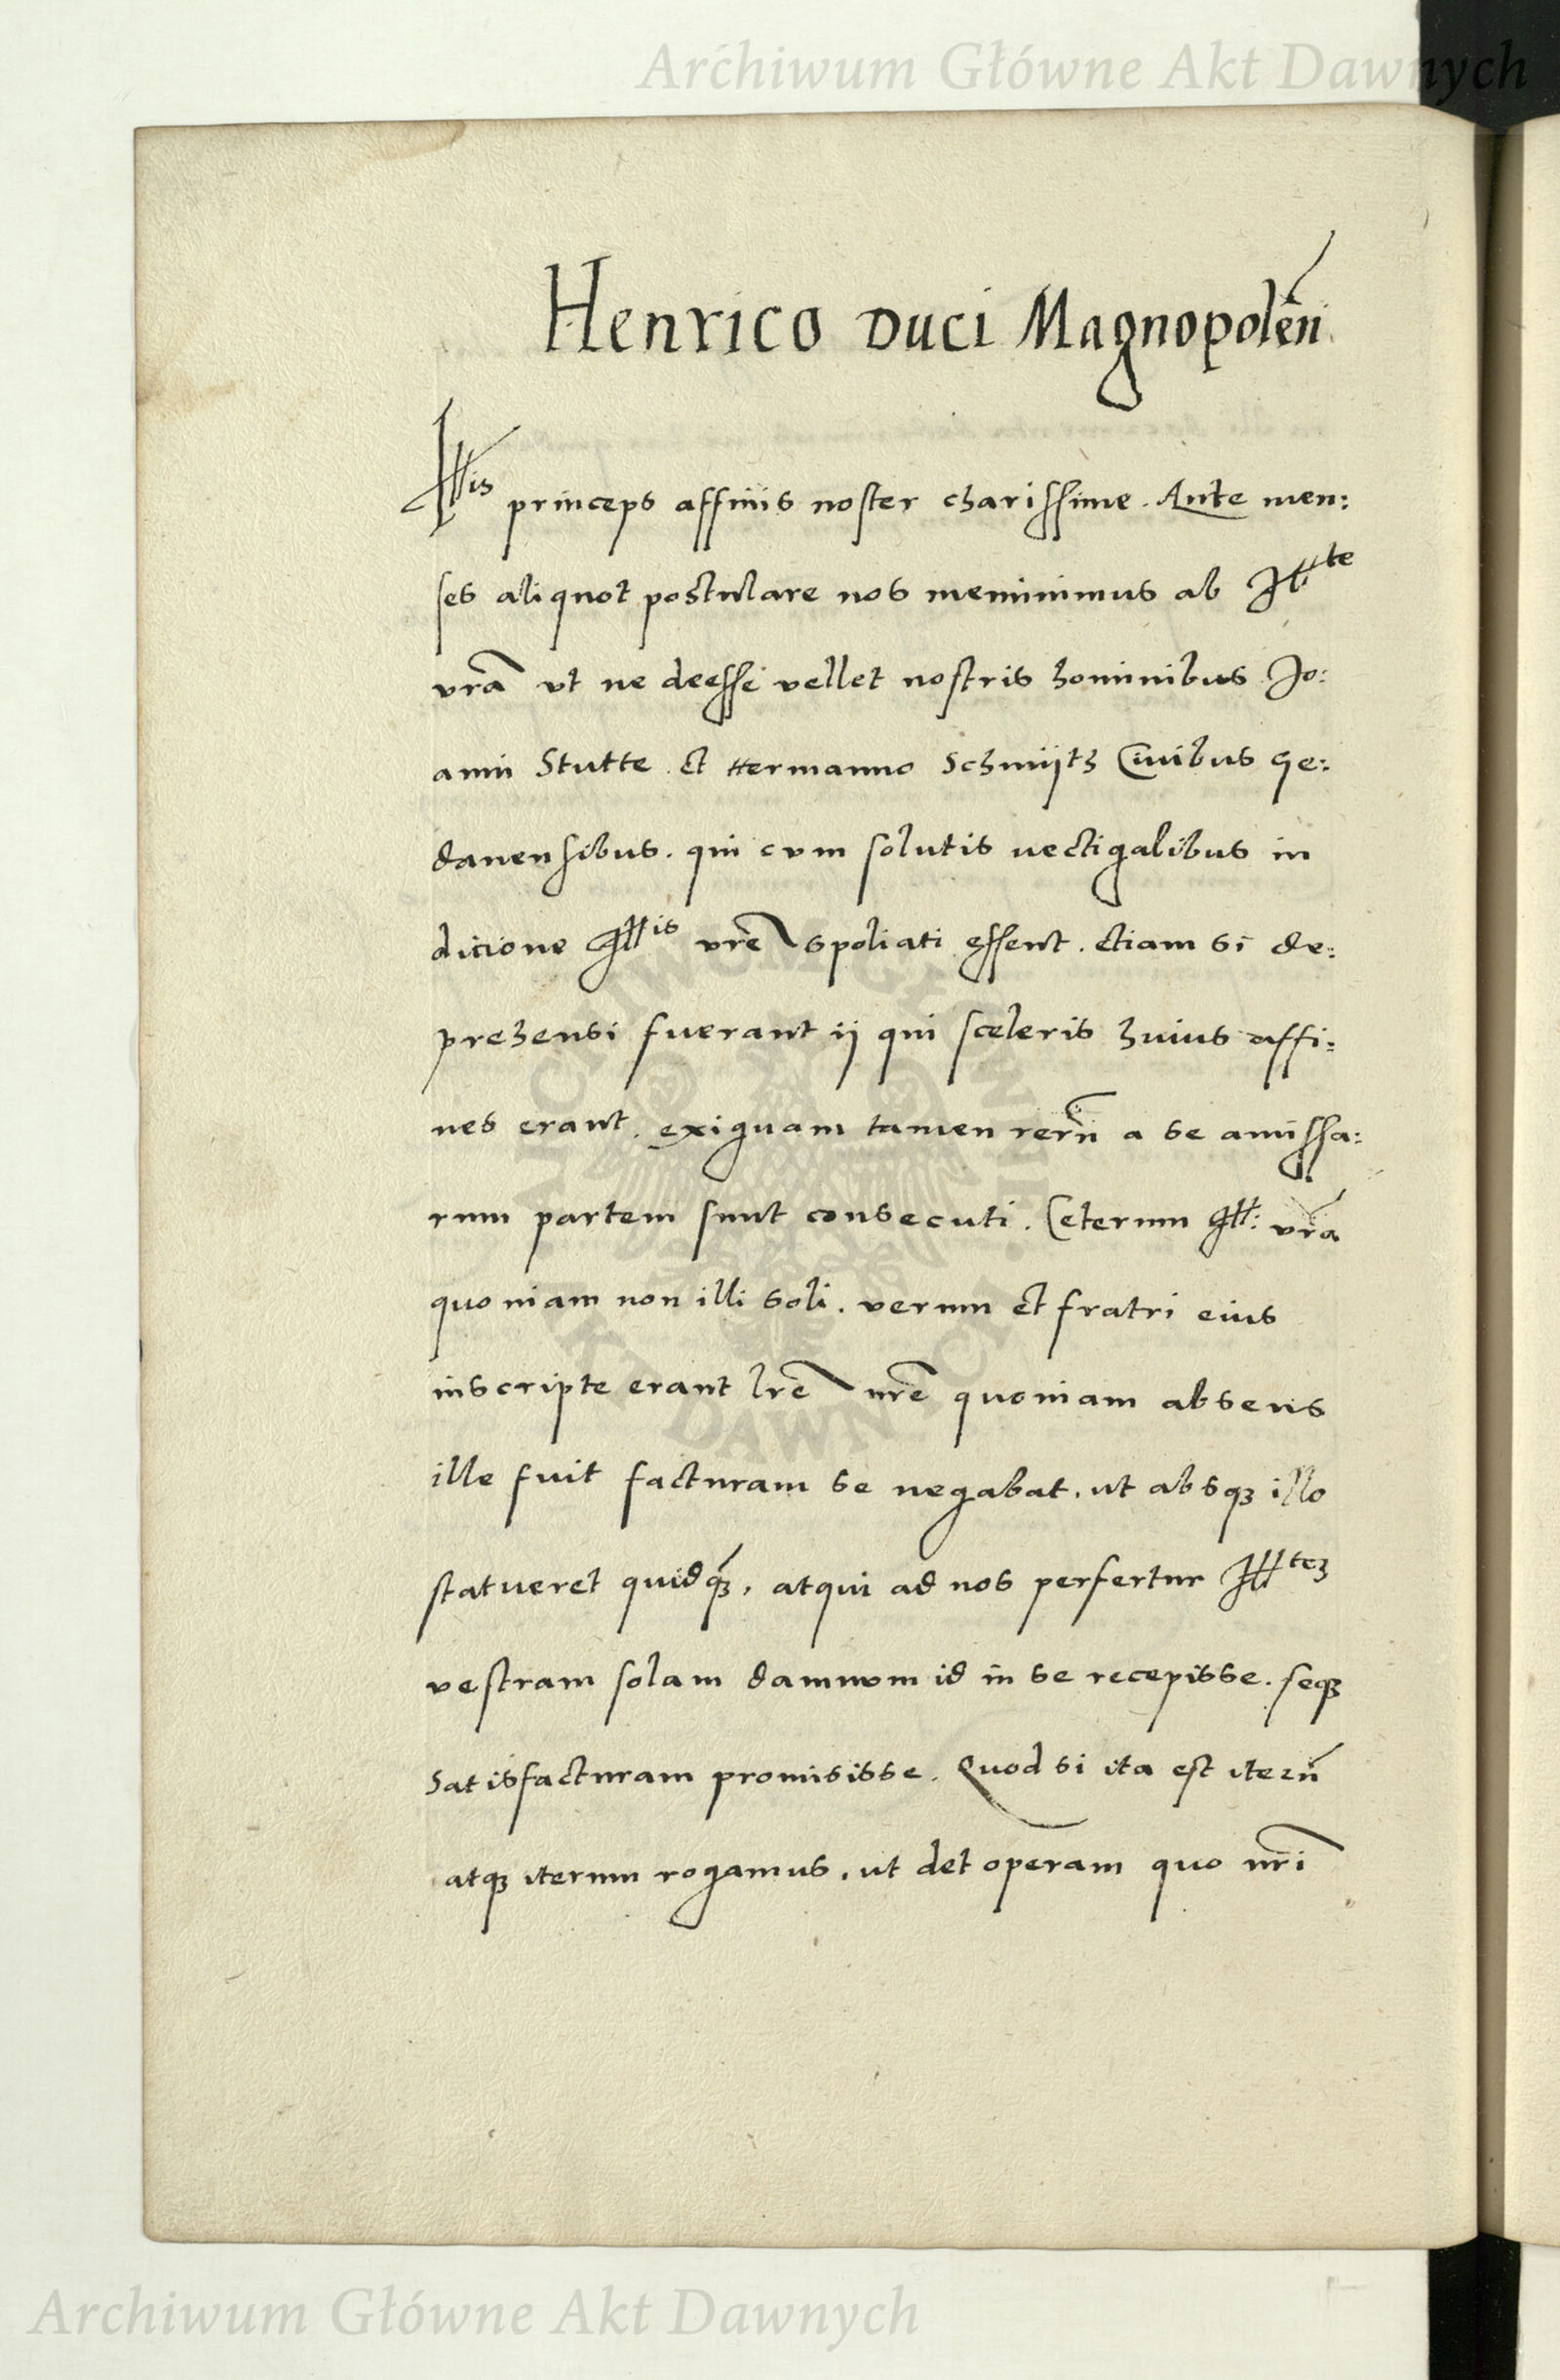 Archiwum Główne Akt Dawnych
Henrico Duci Magnopoleñ
Illis princeps affinis noster charissime. Ante men:
ses aliquot postulare nos meminimus ab Illte
vrã vt ne deesse vellet nostris hominibus Jo:
anni Stutte et Hermanno Schmijth Civibus Ge:
danensibus. qui cum solutis vectigalibus in
dicione Illis vrẽ spoliati essent. etiam si de:
prehensi fuerant ij qui sceleris huius affi:
nes erant. exiguam tamen rerũ a se amissa:
rum partem sunt consecuti. Ceterum Ill: vrã
quoniam non illi soli. verum et fratri eius
inscripte erant lrẽ nrẽ quoniam absens
ille fuit facturam se negabat, ut absqȝ illo
statueret quidqȝ́, atqui ad nos perfertur Illteȝ
vestram solam damnum id in se recepisse. seqȝ
satisfacturam promisisse. Quod si ita est iterũ
atqȝ iterum rogamus, ut det operam quo nrĩ
ARCHIWUM GŁÓWNE AKT DAWNYCH
Archiwum Główne Akt Dawnych